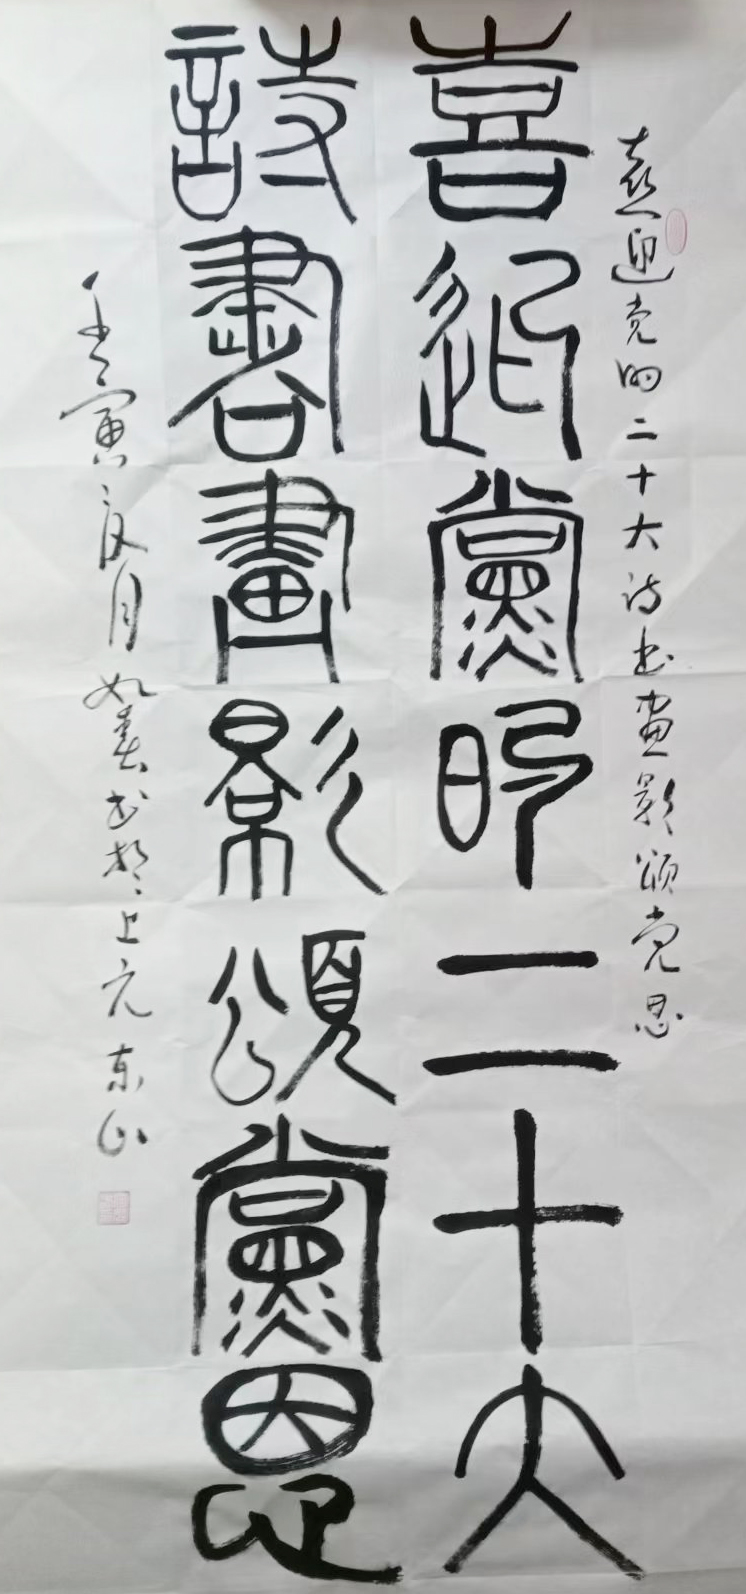 喜迎党的二十大诗书画影颂党恩
喜迎黨的二十大
詩書畫影頌黨恩
壬寅夏月如春书於上元东山